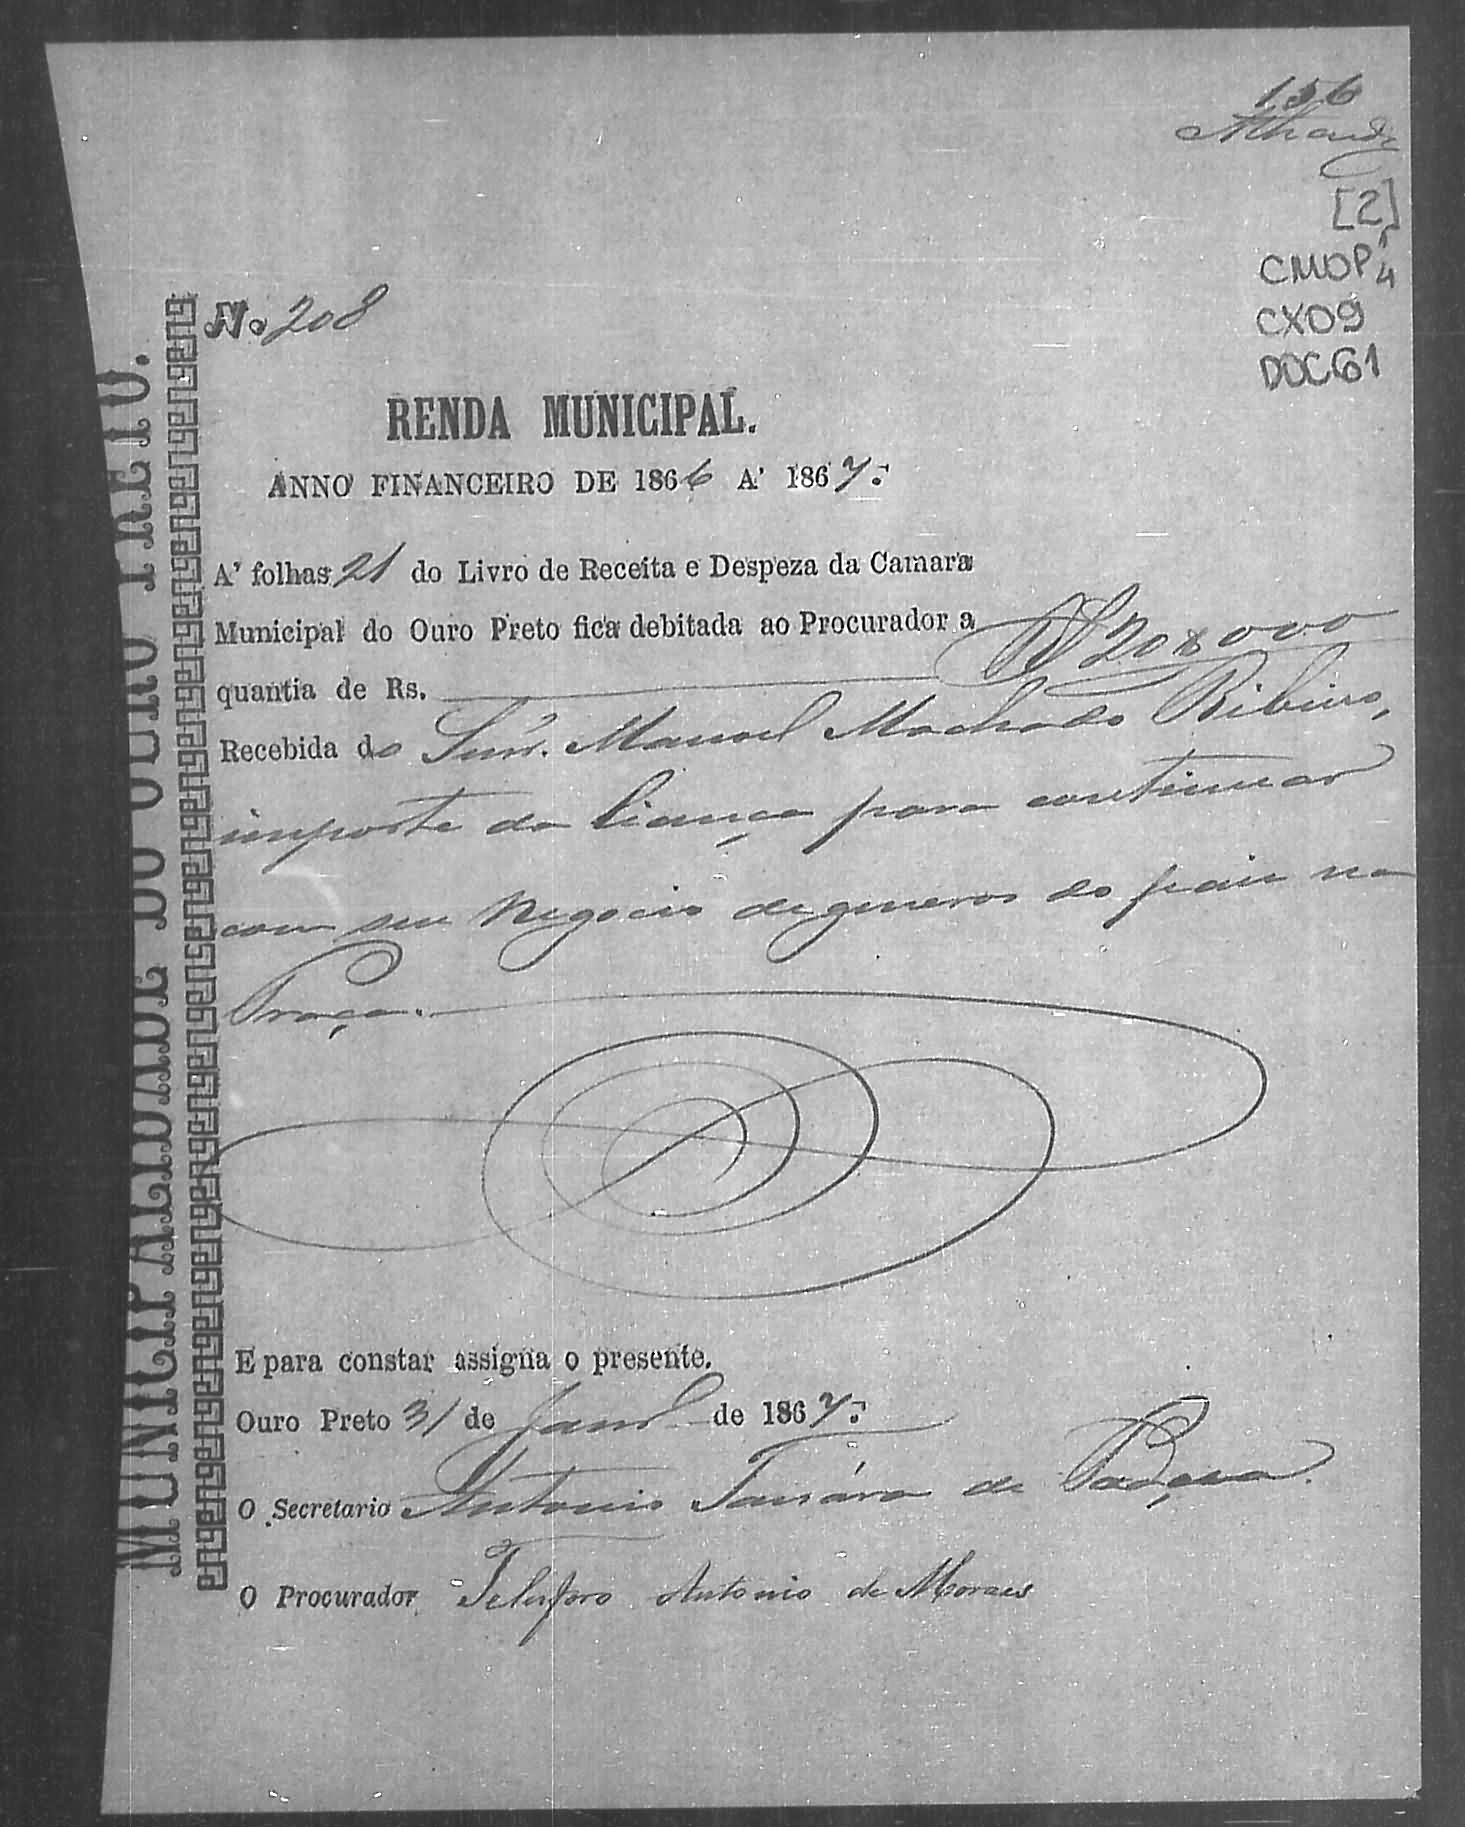 156
[2]
CMOP
4
CX09
DOC61
MUNICIPALIDADE DO OURO PRETO.
No 208
RENDA MUNICIPAL.
ANNO FINANCEIRO DE 1866 A' 1867.
A' folhas 21 do Livro de Receita e Despeza da Camara
Municipal do Ouro Preto fica debitada ao Procurador a
quantia de Rs. 20$000
Recebida do Snr. Manoel Machado Ribeiro,
importe da licença para continuar
com seu negocio de generos do paiz na
Praça.
E para constar assigna o presente.
Ouro Preto 31 de Janrº de 1867.
O Secretario Antonio de
O Procurador Telesforo Antonio de Moraes